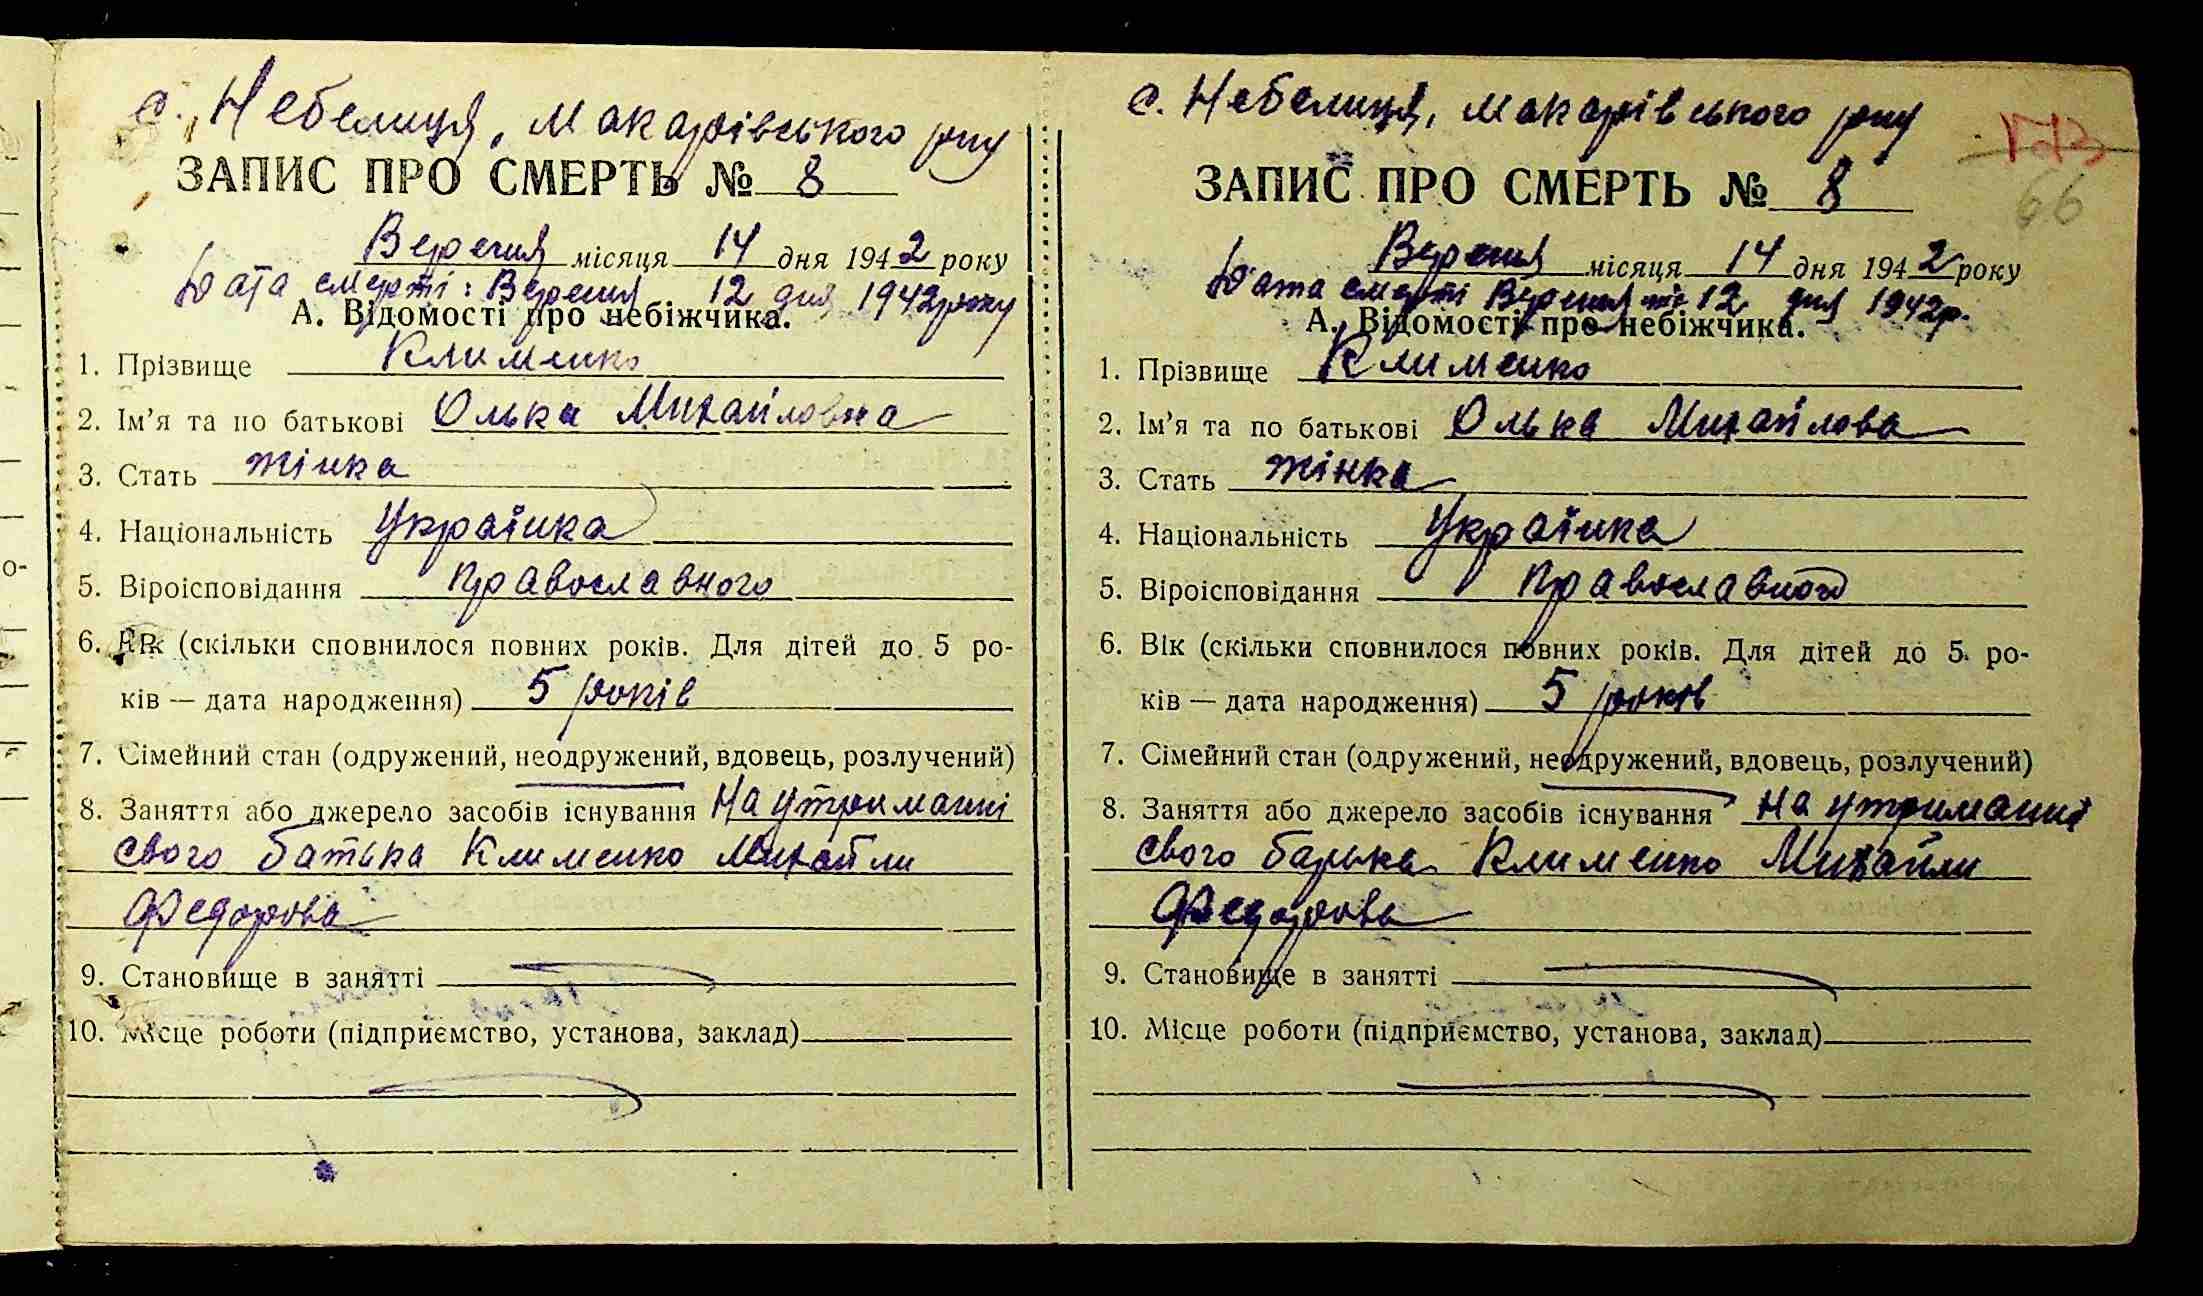 с. Небелиця, Макарівського р-ну
ЗАПИС ПРО СМЕРТЬ № 8
Вересня місяця 14 дня 1942 року
Дата смерті: Вересня 12 дня 1942 року
А. Відомості про небіжчика.
1. Прізвище Клименко
2. Ім'я та по батькові Олька Михайловна
3. Стать жінка
4. Національність Українка
5. Віроісповідання православного
6. Вік (скільки сповнилося повних років. Для дітей до 5 ро-
ків — дата народження) 5 років
7. Сімейний стан (одружений, неодружений, вдовець, розлучений)
8. Заняття або джерело засобів існування На утриманні
свого батька Клименко Михайли
Федорова
9. Становище в занятті
10. Місце роботи (підприємство, установа, заклад)
с. Небелиця, Макарівського р-ну
66
ЗАПИС ПРО СМЕРТЬ № 8
Вересня місяця 14 дня 1942 року
Дата смерті Вересня м-ця 12 дня 1942р.
А. Відомості про небіжчика.
1. Прізвище Клименко
2. Ім'я та по батькові Олька Михайлова
3. Стать жінка
4. Національність Українка
5. Віроісповідання православного
6. Вік (скільки сповнилося повних років. Для дітей до 5 ро-
ків — дата народження) 5 років
7. Сімейний стан (одружений, неодружений, вдовець, розлучений)
8. Заняття або джерело засобів існування На утриманні
свого батька Клименко Михайли
Федорова
9. Становище в занятті
10. Місце роботи (підприємство, установа, заклад)